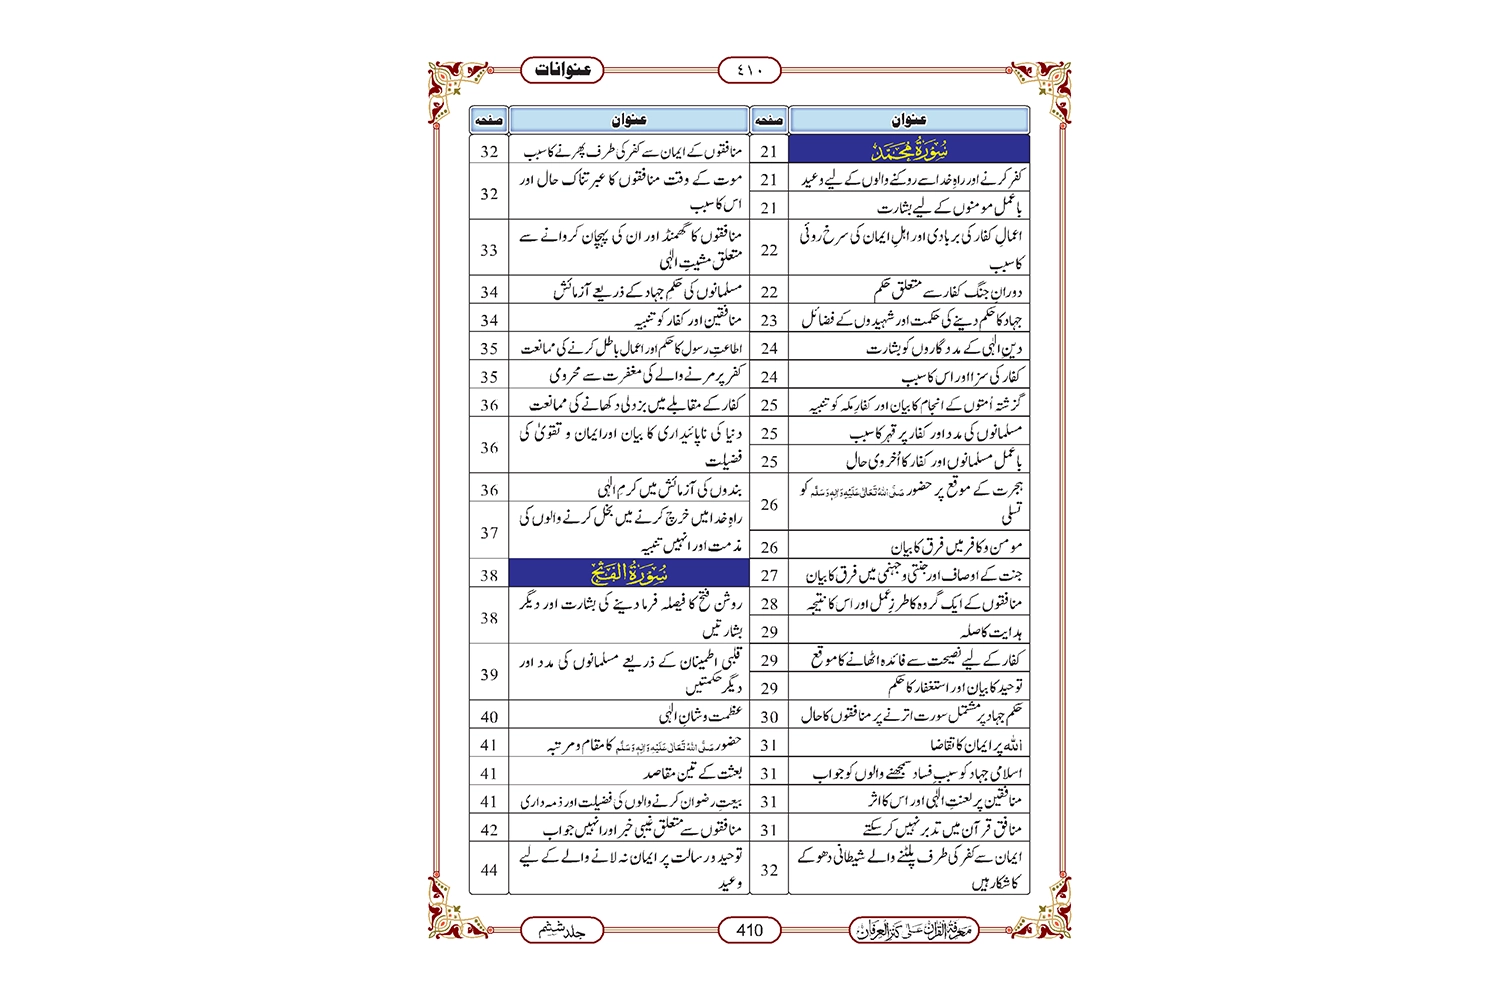 عنوانات
٤١٠
عنوان صفحہ
سُوْرَۃُ مُحَمَّد 21
کفر کرنے اور راہِ خدا سے روکنے والوں کے لیے وعید 21
باعمل مومنوں کے لیے بشارت 21
اعمالِ کفار کی بربادی اور اہلِ ایمان کی سرخ روئی
کا سبب 22
دورانِ جنگ کفار سے متعلق حکم 22
جہاد کا حکم دینے کی حکمت اور شہیدوں کے فضائل 23
دینِ الٰہی کے مددگاروں کو بشارت 24
کفار کی سزا اور اس کا سبب 24
گزشتہ اُمتوں کے انجام کا بیان اور کفارِ مکہ کو تنبیہ 25
مسلمانوں کی مدد اور کفار پر قہر کا سبب 25
باعمل مسلمانوں اور کفار کا اُخروی حال 25
ہجرت کے موقع پر حضور صَلَّی اللہُ تَعَالٰی عَلَیْہِ وَاٰلِہٖ وَسَلَّم کو
تسلی 26
مومن و کافر میں فرق کا بیان 26
جنت کے اوصاف اور جنتی و جہنمی میں فرق کا بیان 27
منافقوں کے ایک گروہ کا طرزِ عمل اور اس کا نتیجہ 28
ہدایت کا صلہ 29
کفار کے لیے نصیحت سے فائدہ اٹھانے کا موقع 29
توحید کا بیان اور استغفار کا حکم 29
حکم جہاد پر مشتمل سورت اترنے پر منافقوں کا حال 30
اللہ پر ایمان کا تقاضا 31
اسلامی جہاد کو سببِ فساد سمجھنے والوں کو جواب 31
منافقین پر لعنتِ الٰہی اور اس کا اثر 31
منافق قرآن میں تدبر نہیں کر سکتے 31
ایمان سے کفر کی طرف پلٹنے والے شیطانی دھوکے
کا شکار ہیں 32
عنوان صفحہ
منافقوں کے ایمان سے کفر کی طرف پھرنے کا سبب 32
موت کے وقت منافقوں کا عبرتناک حال اور
اس کا سبب 32
منافقوں کا گھمنڈ اور ان کی پہچان کروانے سے
متعلق مشیتِ الٰہی 33
مسلمانوں کی حکمِ جہاد کے ذریعے آزمائش 34
منافقین اور کفار کو تنبیہ 34
اطاعتِ رسول کا حکم اور اعمال باطل کرنے کی ممانعت 35
کفر پر مرنے والے کی مغفرت سے محرومی 35
کفار کے مقابلے میں بزدلی دکھانے کی ممانعت 36
دنیا کی ناپائیداری کا بیان اور ایمان و تقویٰ کی
فضیلت 36
بندوں کی آزمائش میں کرمِ الٰہی 36
راہِ خدا میں خرچ کرنے میں بخل کرنے والوں کی
مذمت اور انہیں تنبیہ 37
سُوْرَۃُ الْفَتْح 38
روشن فتح کا فیصلہ فرما دینے کی بشارت اور دیگر
بشارتیں 38
قلبی اطمینان کے ذریعے مسلمانوں کی مدد اور
دیگر حکمتیں 39
عظمت و شانِ الٰہی 40
حضور صَلَّی اللہُ تَعَالٰی عَلَیْہِ وَاٰلِہٖ وَسَلَّم کا مقام و مرتبہ 41
بعثت کے تین مقاصد 41
بیعتِ رضوان کرنے والوں کی فضیلت اور ذمہ داری 41
منافقوں سے متعلق غیبی خبر اور انہیں جواب 42
توحید و رسالت پر ایمان نہ لانے والے کے لیے
وعید 44
معرفۃ القرآن علیٰ کنز العرفان
410
جلد ششم